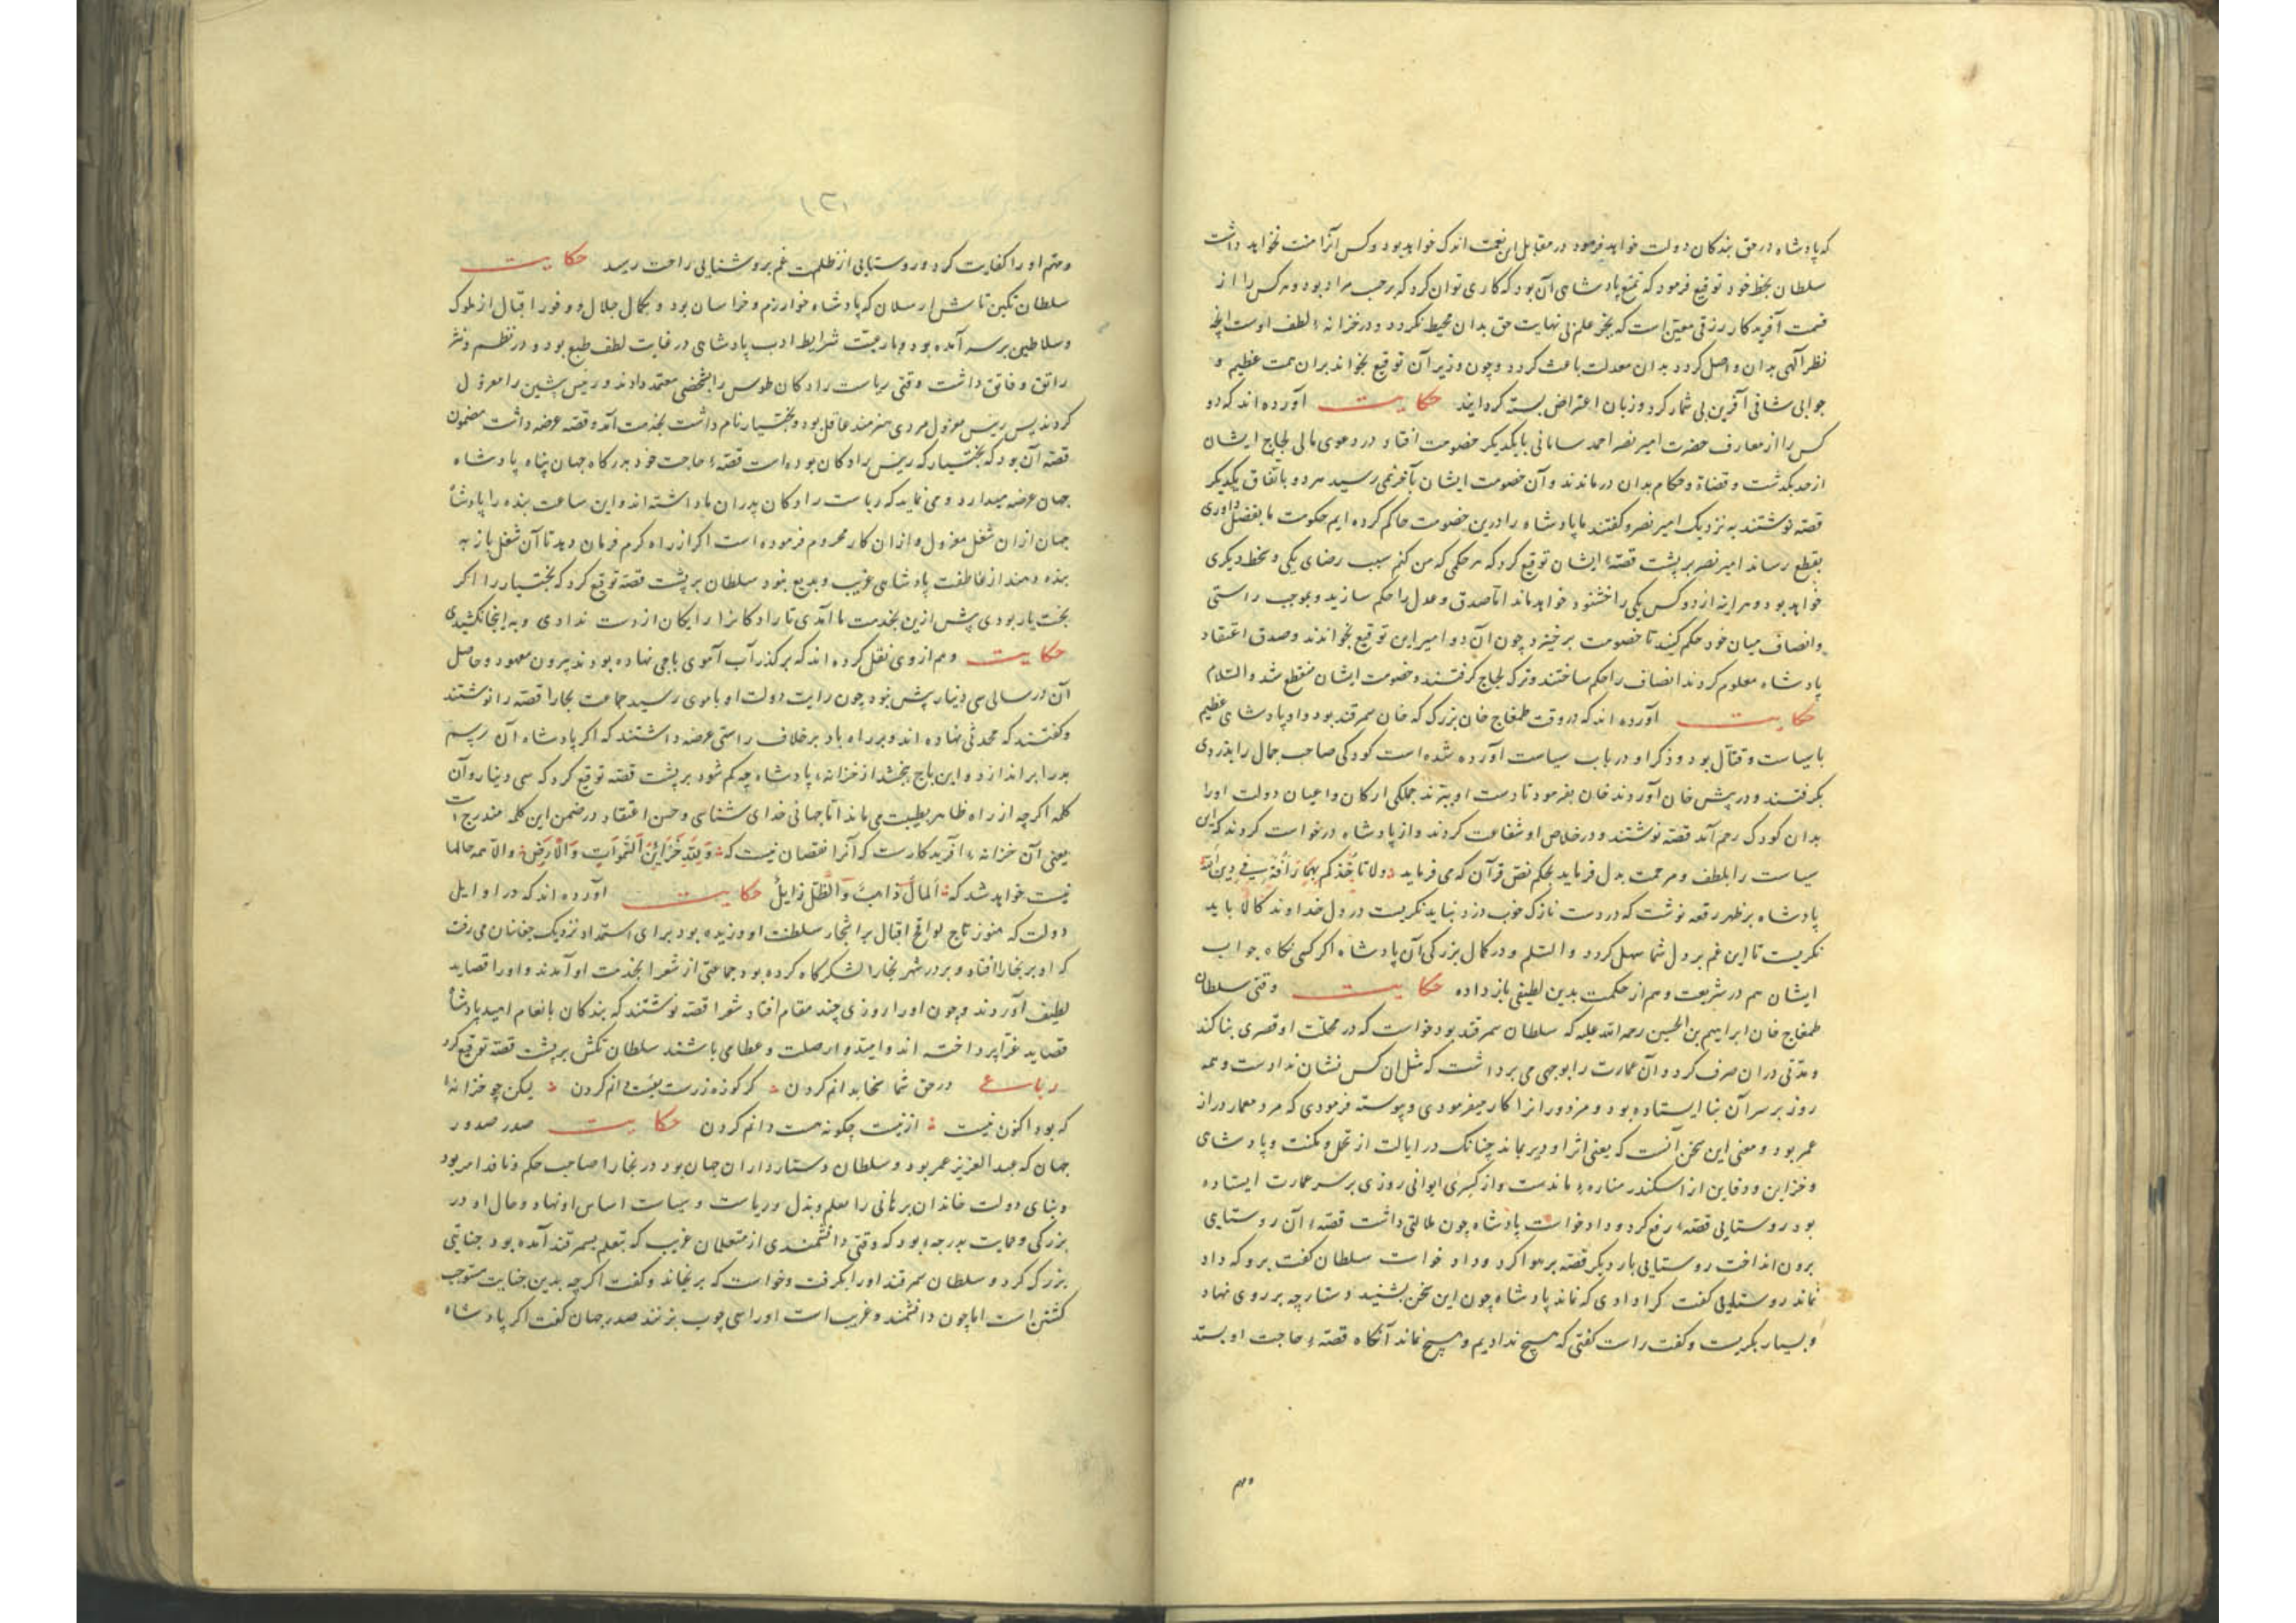 که پادشاه در حق بندکان دولت خواهد فرمود در مقابل این نعمت اندک خواهد بود و کس آنرا منت نخواهد داشت
سلطان بخط خود توقیع فرمود که تمتع پادشاهی آن بود که کاری توان کرد که برحسب مراد بود و هر کس را از
قسمت آفریدکار رزقی معین است که بجز علم بی نهایت حق بدان محیط نکردد و در خزانهٔ لطف اوست آنچه
نظر آلهی بدان واصل کردد بدان معدلت باعث کردد و چون وزیر آن توقیع بخواند بران همت عظیم و
جوابی شافی آفرین بی شمار کرد و زبان اعتراض بسته کردانید حکایت آورده اند که دو
کس را از معارف حضرت امیر نصر احمد سامانی بایکدیکر خصومت افتاد و در دعوی مالی لجاج ایشان
از حد بکذشت و قضاة و حکام بدان درماندند و آن خصومت ایشان بآخر نمی رسید هر دو باتفاق یکدیکر
قصه نوشتند به نزدیک امیر نصر و کفتند ما پادشاه را درین خصومت حاکم کرده ایم حکومت ما بفضل داوری
بقطع رساند امیر نصر بر پشت قصهٔ ایشان توقیع کرد که هر حکمی که من کنم سبب رضای یکی و سخط دیکری
خواهد بود و هر اینه از دو کس یکی ناخشنود خواهد ماند اما صدق و عدل را حکم سازید و بموجب راستی
و انصاف میان خود حکم کنید تا خصومت برخیزد چون آن دو امیر این توقیع بخواندند و صدق اعتقاد
پادشاه معلوم کردند انصاف را حکم ساختند و ترک لجاج کرفتند و خصومت ایشان منقطع شد والسلام
حکایت آورده اند که در وقت طمغاج خان بزرک که خان سمرقند بود و او پادشاهی عظیم
با سیاست و قتال بود و ذکر او در باب سیاست آورده شده است کودکی صاحب جمال را بدزدی
بکرفتند و در پیش خان آوردند خان بفرمود تا دست او ببرند جملکی ارکان و اعیان دولت او را
بدان کودک رحم آمد قصه نوشتند و در خلاص او شفاعت کردند و از پادشاه درخواست کردند که این
سیاست را بلطف و مرحمت بدل فرماید بحکم نص قرآن که می فرماید ولا تاخذکم بهما رأفة فی دین الله
پادشاه بر ظهر رقعه نوشت که در دست نازک خوب دزد نباید نکریست در دل خداوند کالا باید
نکریست تا این غم بر دل شما سهل کردد والسلم و در کمال بزرکی آن پادشاه اکر کسی نکاه جواب
ایشان هم در شریعت و هم از حکمت بدین لطیفی باز داده حکایت وقتی سلطان
طمغاج خان ابراهیم بن الحسین رحمه الله علیه که سلطان سمرقند بود خواست که در محلت او قصری بنا کند
و مدتی دران صرف کرد و آن عمارت را بوجهی می برداشت که مثل آن کس نشان نداده است و همه
روز بر سر آن بنا ایستاده بود و مزدورانرا کار میفرمودی و پیوسته فرمودی که مرد معمار دراز
عمر بود و معنی این سخن آنست که یعنی اثر او دیر بماند چنانک در ایالت از تحمل و مکنت و پادشاهی
و خزاین و دفاین از اسکندر مناره ٔ ماندست و از کسری ایوانی روزی بر سر عمارت ایستاده
بود روستایی قصهٔ رفع کرد و داد خواست پادشاه چون ملالتی داشت قصهٔ آن روستایی
برون انداخت روستایی بار دیکر قصه بر هوا کرد و داد خواست سلطان کفت برو که داد
نماند روستایی کفت کرا دادی که نماند پادشاه چون این سخن بشنید دستارچه بر روی نهاد
و بسیار بکریست و کفت راست کفتی که هیچ ندادیم و هیچ نماند آنکاه قصهٔ حاجت او بستد
و مهم
و مهم او را کفایت کرد و روستایی از ظلمت غم بروشنایی راحت رسید حکایت
سلطان تکین تاش ارسلان که پادشاه خوارزم و خراسان بود و بکمال جلال و وفور اقبال از ملوک
و سلاطین بر سر آمده بود و بارعیت شرایط ادب پادشاهی در غایت لطف طبع بود و در نظم و نثر
رائق و فائق داشت وقتی ریاست رادکان طوس را بشخصی معتمد دادند و رئیس پیشین را معزول
کردند پس رئیس معزول مردی هنرمند عاقل بود و بختیار نام داشت بخدمت آمد و قصه عرضه داشت مضمون
قصه آن بود که بختیار که رئیس رادکان بوده است قصهٔ حاجت خود بدرکاه جهان پناه پادشاه
جهان عرضه میدارد و می نماید که ریاست رادکان پدران ما داشته اند و این ساعت بنده را پادشاه
جهان ازان شغل معزول و ازان کار محروم فرموده است اکر از راه کرم فرمان دهد تا آن شغل باز به
بنده دهند از عاطفت پادشاهی غریب و بدیع نبود سلطان بر پشت قصه توقیع کرد که بختیار را اکر
بخت یار بودی پیش ازین بخدمت ما آمدی تا رادکانرا رایکان از دست ندادی و به اینجا نکشیدی
حکایت و هم از وی نقل کرده اند که بر کذر آب آموی باجی نهاده بودند بیرون معهود و حاصل
آن در سالی سی دینار بیش نبود چون رایت دولت او بآموی رسید جماعت بخارا قصه را نوشتند
و کفتند که محدثی نهاده اند و بر راه باد برخلاف راستی عرضه داشتند که اکر پادشاه آن رسم
بد را براندازد و این باج ببخشد از خزانهٔ پادشاه چه کم شود بر پشت قصه توقیع کرد که سی دینار و آن
کلمه اکرچه از راه ظاهر بطیبت می ماند اما جهانی خدای شناسی و حسن اعتقاد در ضمن این کلمه مندرج است
یعنی آن خزانهٔ آفریدکارست که آنرا نقصان نیست که وَلِلّهِ خَزَائِنُ السَّمَوَاتِ وَالْاَرْضِ والا همه مالها
نیست خواهد شد که اَلمالُ ذاهبٌ وَالظِّلُّ زایلٌ حکایت آورده اند که در اوایل
دولت که هنوز تاج لواقح اقبال بر اشجار سلطنت او وزیده بود برای استمداد نزدیک جغتان می رفت
که او بر بخارا افتاد و بر در شهر بخارا لشکرکاه کرده بود جماعتی از شعرا بخدمت او آمدند و او را قصاید
لطیف آوردند و چون او را روزی چند مقام افتاد شعرا قصه نوشتند که بندکان بانعام امید پادشاه
قصاید غرا پرداخته اند و امیدوار صلت و عطا می باشند سلطان تکش بر پشت قصه توقیع کرد
رباعی در حق شما سخا بدانم کردن کر کوزه زرست بفت دانم کردن لیکن چو خزانهٔ
که بود اکنون نیست از نیست چکونه هست دانم کردن حکایت صدر صدور
جهان که عبد العزیز عمر بود و سلطان دستارداران جهان بود در بخارا صاحب حکم و نافذ امر بود
و بنای دولت خاندان برهانی را بعلم و بذل و ریاست و سیاست اساس او نهاد و حال او در
بزرکی و حمایت بدرجهٔ بود که وقتی دانشمندی از متعلمان غریب که بتعلم بسمرقند آمده بود جنایتی
بزرک کرد و سلطان سمرقند او را بکرفت و خواست که برنجاند و کفت اکرچه بدین جنایت مستوجب
کشتن است اما چون دانشمند و غریب است او را سی چوب بزنند صدر جهان کفت اکر پادشاه